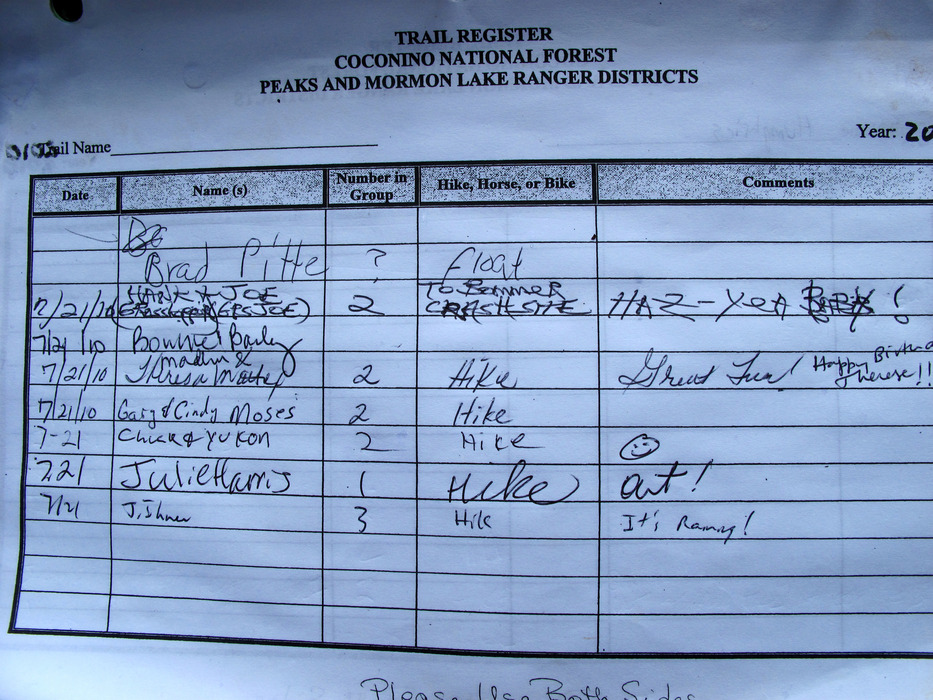 TRAIL REGISTER
COCONINO NATIONAL FOREST
PEAKS AND MORMON LAKE RANGER DISTRICTS
Year: 20
Trail Name
Date Name (s) Number in Group Hike, Horse, or Bike Comments
Brad Pitte ? float
7/21/10 HANK & JOE 2 TO BOMMER CRASH SITE HAZ-YEA !
(GPSJOE)
7/21/10 Bonnie Baily
7/21/10 2 Hike Great Fun! Happy Birthd
Theresa therese!!
7/21/10 Gary & Cindy Moses 2 Hike
7-21 Chuck & YUKON 2 Hike
7.21 Julie Harris 1 Hike out!
7/21 3 Hik It's Raining!
Please Use Both Sides